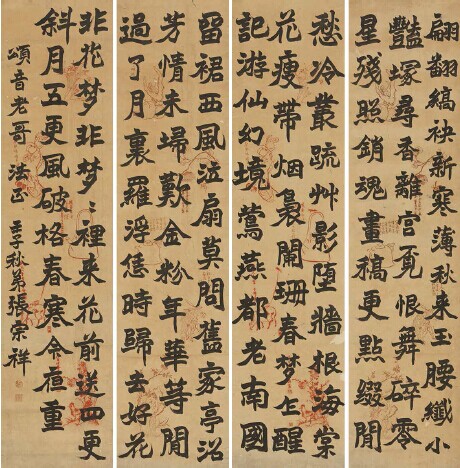 翩翻縞袂新寒薄秋来玉腰纖小
豔塚尋香離宮覓恨舞碎零
星殘照銷魂畫稿更點綴閒
愁冷叢疏艸影墮牆根海棠
花瘦帶烟裊闌珊春夢乍醒
記游仙幻境鶯燕都老南國
留裙西風泣扇莫問舊家亭沼
芳情未埽歎金粉年華等閒
過了月裏羅浮恁時歸去好花
非花梦非梦ミ裡来花前送四更
斜月五更風破格春寒令重
頌音老哥 法正 壬子秋弟張宗祥